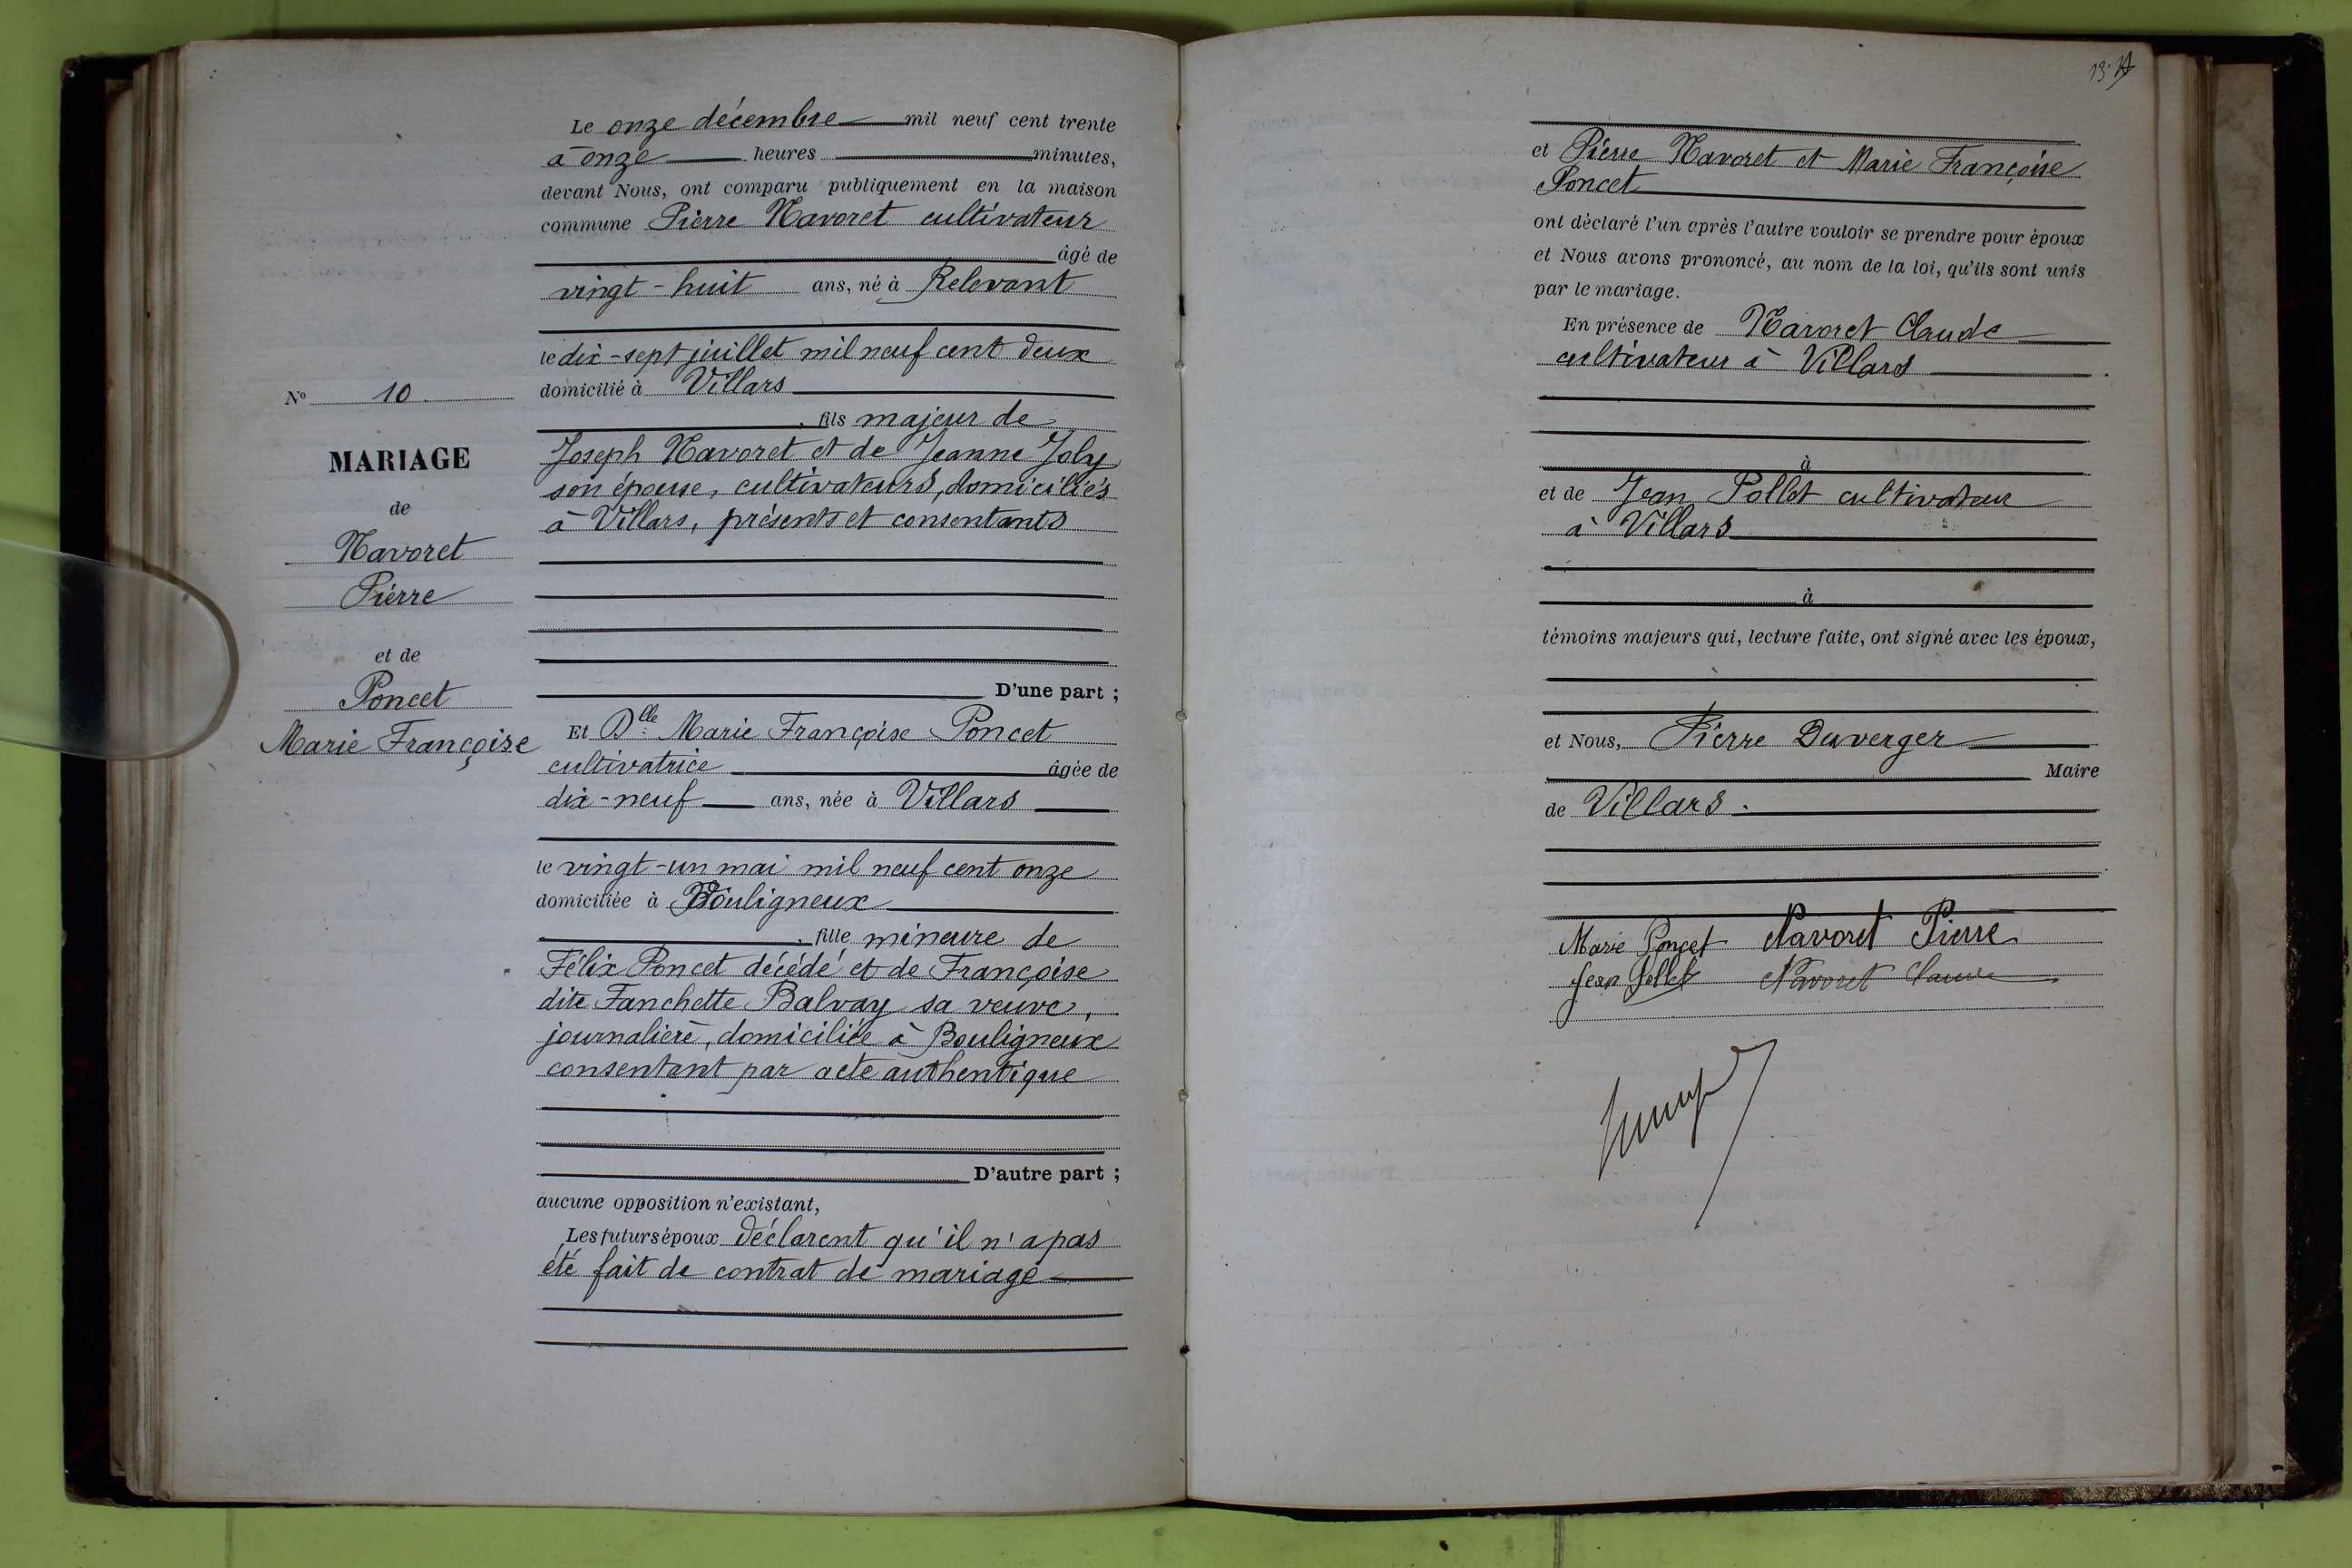 Le onze décembre mil neuf cent trente
à onze heures minutes,
devant Nous, ont comparu publiquement en la maison
commune Pierre Navoret cultivateur
âgé de
vingt-huit ans, né à Relevant
le dix-sept juillet mil neuf cent deux
domicilié à Villars
, fils majeur de
Joseph Navoret et de Jeanne Joly
son épouse, cultivateurs, domiciliés
à Villars, présents et consentants
D'une part ;
Et Dlle Marie Françoise Poncet
cultivatrice âgée de
dix-neuf ans, née à Villars
le vingt-un mai mil neuf cent onze
domiciliée à Bouligneux
, fille mineure de
Félix Poncet décédé et de Françoise
dite Fanchette Balvay sa veuve,
journalière, domiciliée à Bouligneux
consentant par acte authentique
D'autre part ;
aucune opposition n'existant,
Les futurs époux déclarent qu'il n'a pas
été fait de contrat de mariage
No 10
MARIAGE
de
Navoret
Pierre
et de
Poncet
Marie Françoise
et Pierre Navoret et Marie Françoise
Poncet
ont déclaré l'un après l'autre vouloir se prendre pour époux
et Nous avons prononcé, au nom de la loi, qu'ils sont unis
par le mariage.
En présence de Navoret Claude
cultivateur à Villars
à
et de Jean Pollet cultivateur
à Villars
à
témoins majeurs qui, lecture faite, ont signé avec les époux,
et Nous, Pierre Duverger
Maire
de Villars.
Marie Poncet Navoret Pierre
Jean Pollet Navoret Claude